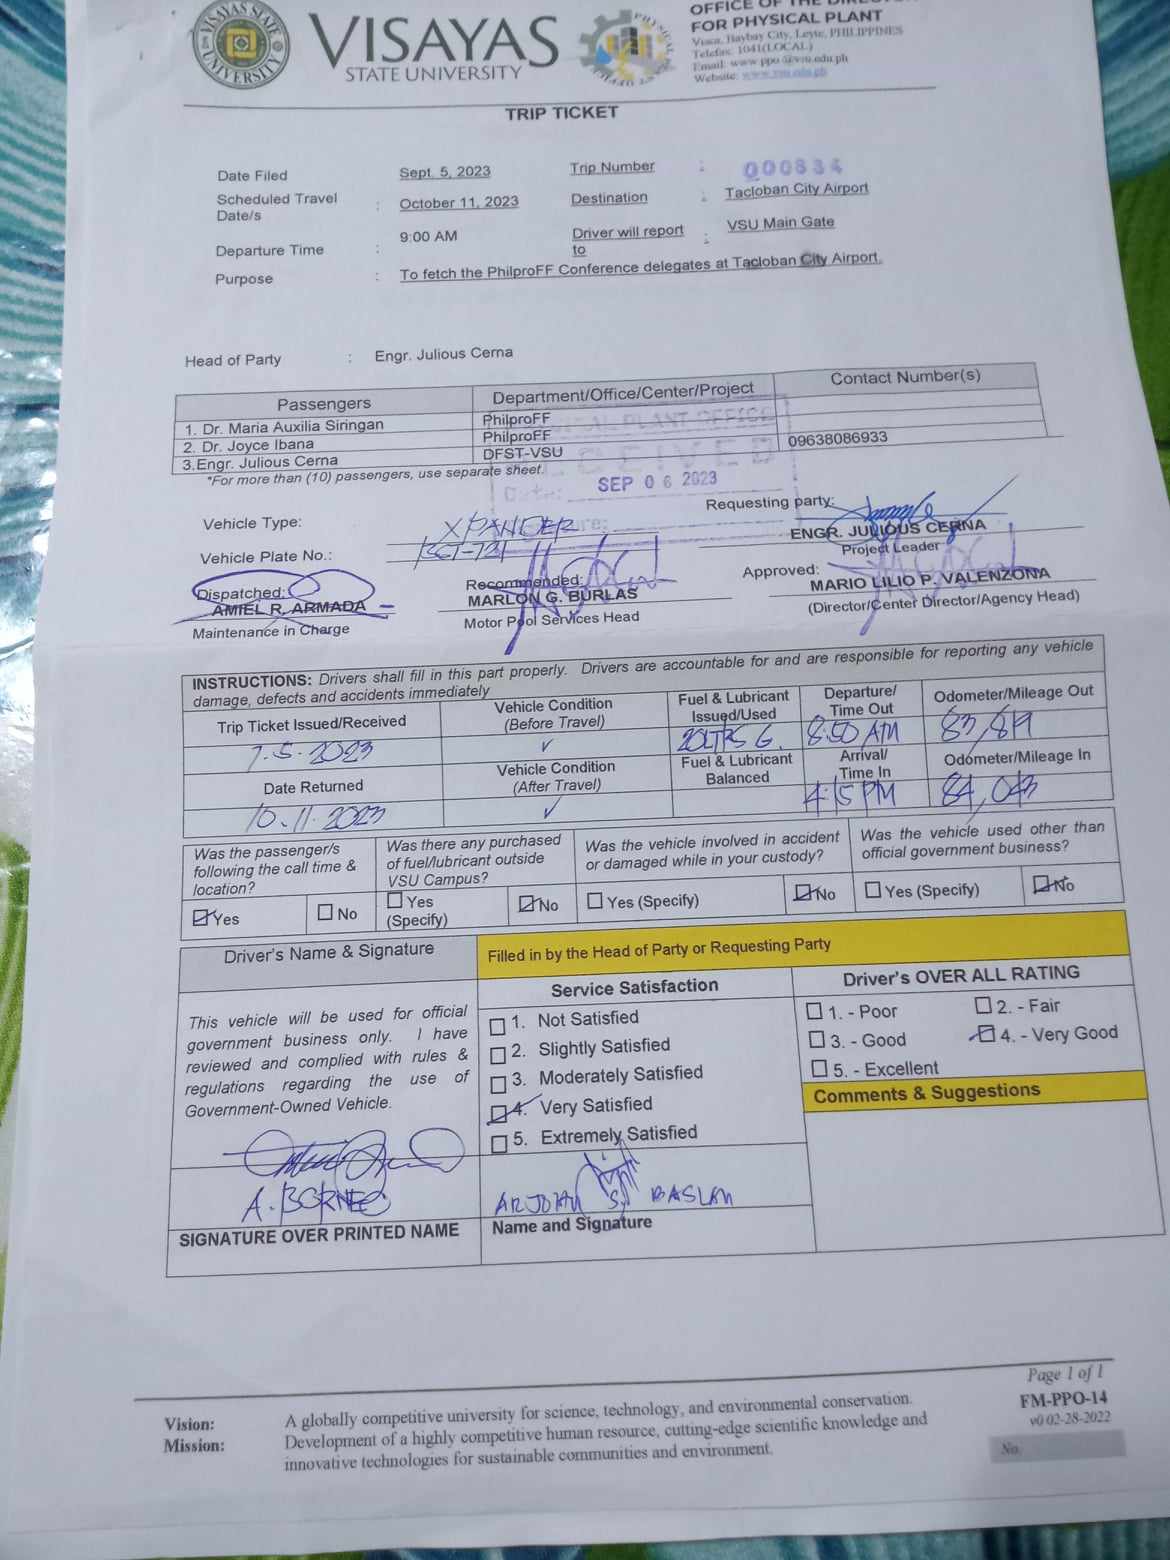 VISAYAS STATE UNIVERSITY
VISAYAS
STATE UNIVERSITY
OFFICE OF THE
FOR PHYSICAL PLANT
Visca, Baybay City, Leyte, PHILIPPINES
Telefax: 1041(LOCAL)
Email: www.ppo@vsu.edu.ph
Website: www.vsu.edu.ph
TRIP TICKET
Date Filed Sept. 5, 2023 Trip Number : 000834
Scheduled Travel Date/s : October 11, 2023 Destination : Tacloban City Airport
Departure Time : 9:00 AM Driver will report to : VSU Main Gate
Purpose : To fetch the PhilproFF Conference delegates at Tacloban City Airport.
Head of Party : Engr. Julious Cerna
Passengers Department/Office/Center/Project Contact Number(s)
1. Dr. Maria Auxilia Siringan PhilproFF
2. Dr. Joyce Ibana PhilproFF
3.Engr. Julious Cerna DFST-VSU 09638086933
*For more than (10) passengers, use separate sheet.
PLANT OFFICE
RECEIVED
Date: SEP 06 2023
Vehicle Type: XPANDER
Requesting party:
ENGR. JULIOUS CERNA
Project Leader
Vehicle Plate No.:
Dispatched: Recommended: Approved:
AMIEL R. ARMADA MARLON G. BURLAS MARIO LILIO P. VALENZONA
Maintenance in Charge Motor Pool Services Head (Director/Center Director/Agency Head)
INSTRUCTIONS: Drivers shall fill in this part properly. Drivers are accountable for and are responsible for reporting any vehicle
damage, defects and accidents immediately
Trip Ticket Issued/Received Vehicle Condition (Before Travel) Fuel & Lubricant Issued/Used Departure/ Time Out Odometer/Mileage Out
7.5.2023 ✓ 20LTRS G. 8:50 AM 83,819
Date Returned Vehicle Condition (After Travel) Fuel & Lubricant Balanced Arrival/ Time In Odometer/Mileage In
10.11.2023 ✓ 4:15 PM 84,043
Was the passenger/s following the call time & location? Was there any purchased of fuel/lubricant outside VSU Campus? Was the vehicle involved in accident or damaged while in your custody? Was the vehicle used other than official government business?
☑Yes ☐ No ☐ Yes (Specify) ☑No ☐ Yes (Specify) ☑No ☐ Yes (Specify) ☑No
Driver's Name & Signature Filled in by the Head of Party or Requesting Party
Service Satisfaction Driver's OVER ALL RATING
This vehicle will be used for official
government business only. I have
reviewed and complied with rules &
regulations regarding the use of
Government-Owned Vehicle.
☐ 1. Not Satisfied
☐ 2. Slightly Satisfied
☐ 3. Moderately Satisfied
☑ 4. Very Satisfied
☐ 5. Extremely Satisfied
☐ 1. - Poor ☐ 2. - Fair
☐ 3. - Good ☑ 4. - Very Good
☐ 5. - Excellent
Comments & Suggestions
A. BORNEO
SIGNATURE OVER PRINTED NAME
S. BASLAN
Name and Signature
Page 1 of 1
FM-PPO-14
v0 02-28-2022
No.
Vision: A globally competitive university for science, technology, and environmental conservation.
Mission: Development of a highly competitive human resource, cutting-edge scientific knowledge and
innovative technologies for sustainable communities and environment.